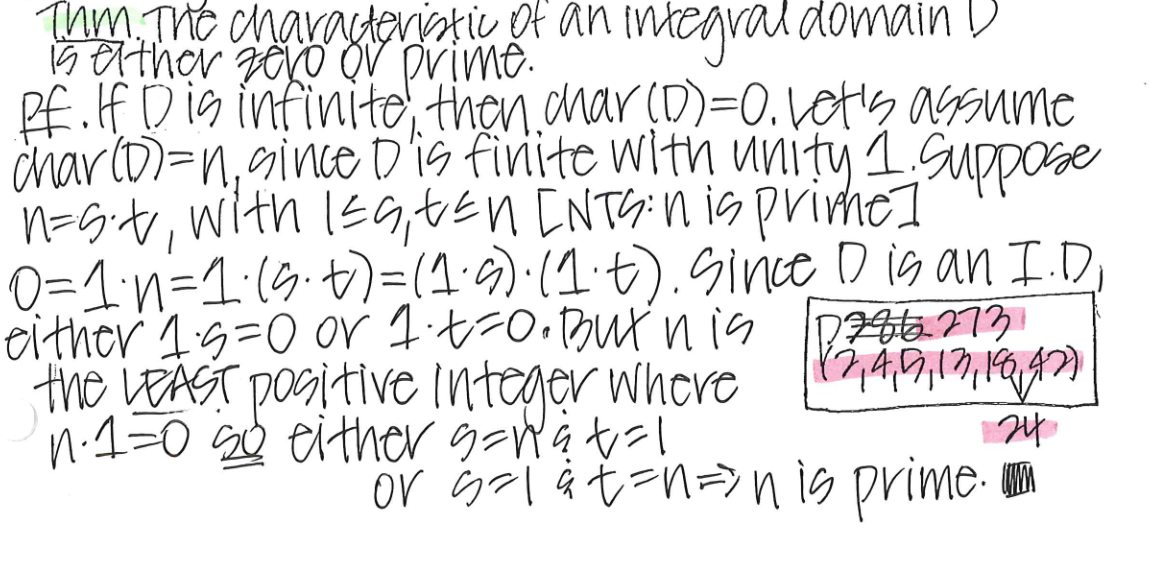 Thm. The characteristic of an integral domain D
is either zero or prime.
Pf. If D is infinite, then char(D)=0. Let's assume
char(D)=n, since D is finite with unity 1. Suppose
n=s·t, with 1≤s,t≤n [NTS: n is prime]
0=1·n=1·(s·t)=(1·s)·(1·t). Since D is an I.D,
either 1·s=0 or 1·t=0. But n is
the LEAST positive integer where
n·1=0 so either s=n & t=1
or s=1 & t=n⇒n is prime.
P 286 273
(2,4,5,13,18,42)
24